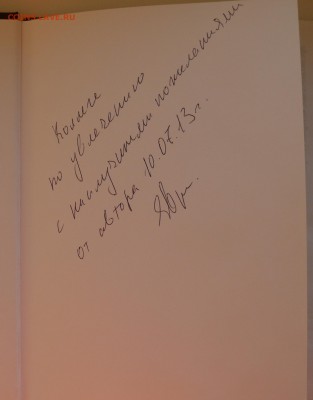 Коллеге
по увлечению
с наилучшими пожеланиями
от автора 10.07.13г.